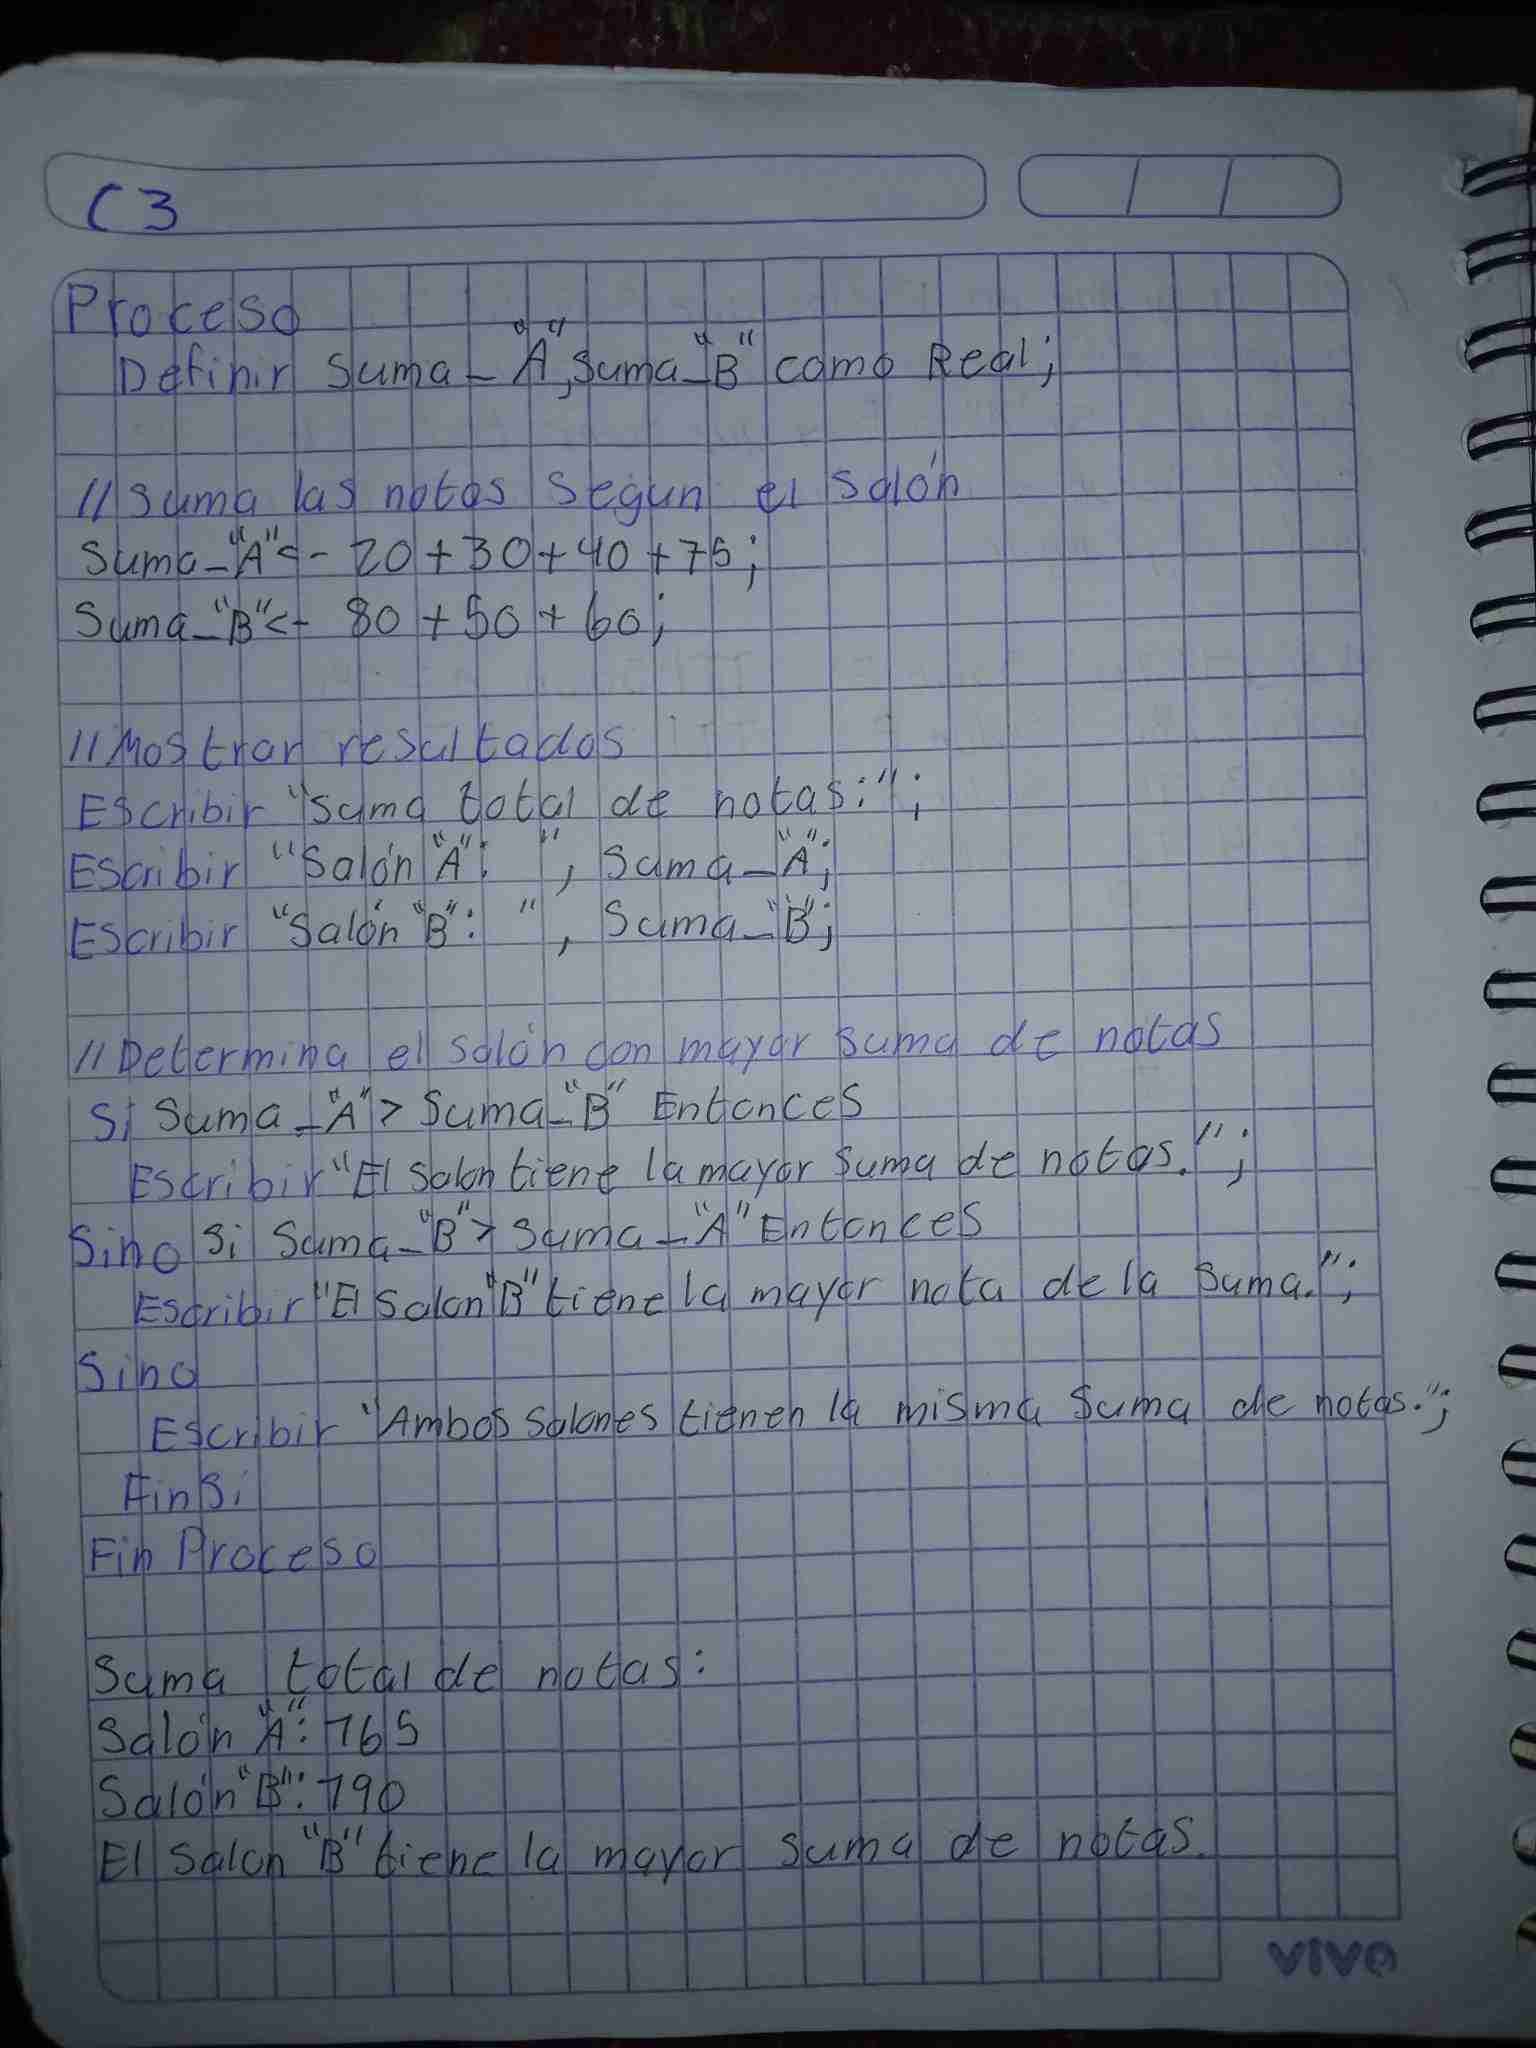 C3
Proceso
Definir Suma_"A", Suma_"B" como Real;
//Suma las notas segun el salón
Suma_"A"<- 20+30+40+75;
Suma_"B"<- 80+50+60;
//Mostrar resultados
Escribir "Suma total de notas:";
Escribir "Salón "A": ", Suma_"A";
Escribir "Salón "B": ", Suma_"B";
//Determina el salón con mayor suma de notas
Si Suma_"A" > Suma_"B" Entonces
Escribir "El salon tiene la mayor suma de notas.";
Sino Si Suma_"B" > Suma_"A" Entonces
Escribir "El Salon "B" tiene la mayor nota de la suma.";
Sino
Escribir "Ambos salones tienen la misma suma de notas.";
FinSi
Fin Proceso
Suma total de notas:
Salón "A": 165
Salón "B": 190
El Salon "B" tiene la mayor suma de notas.
vivo